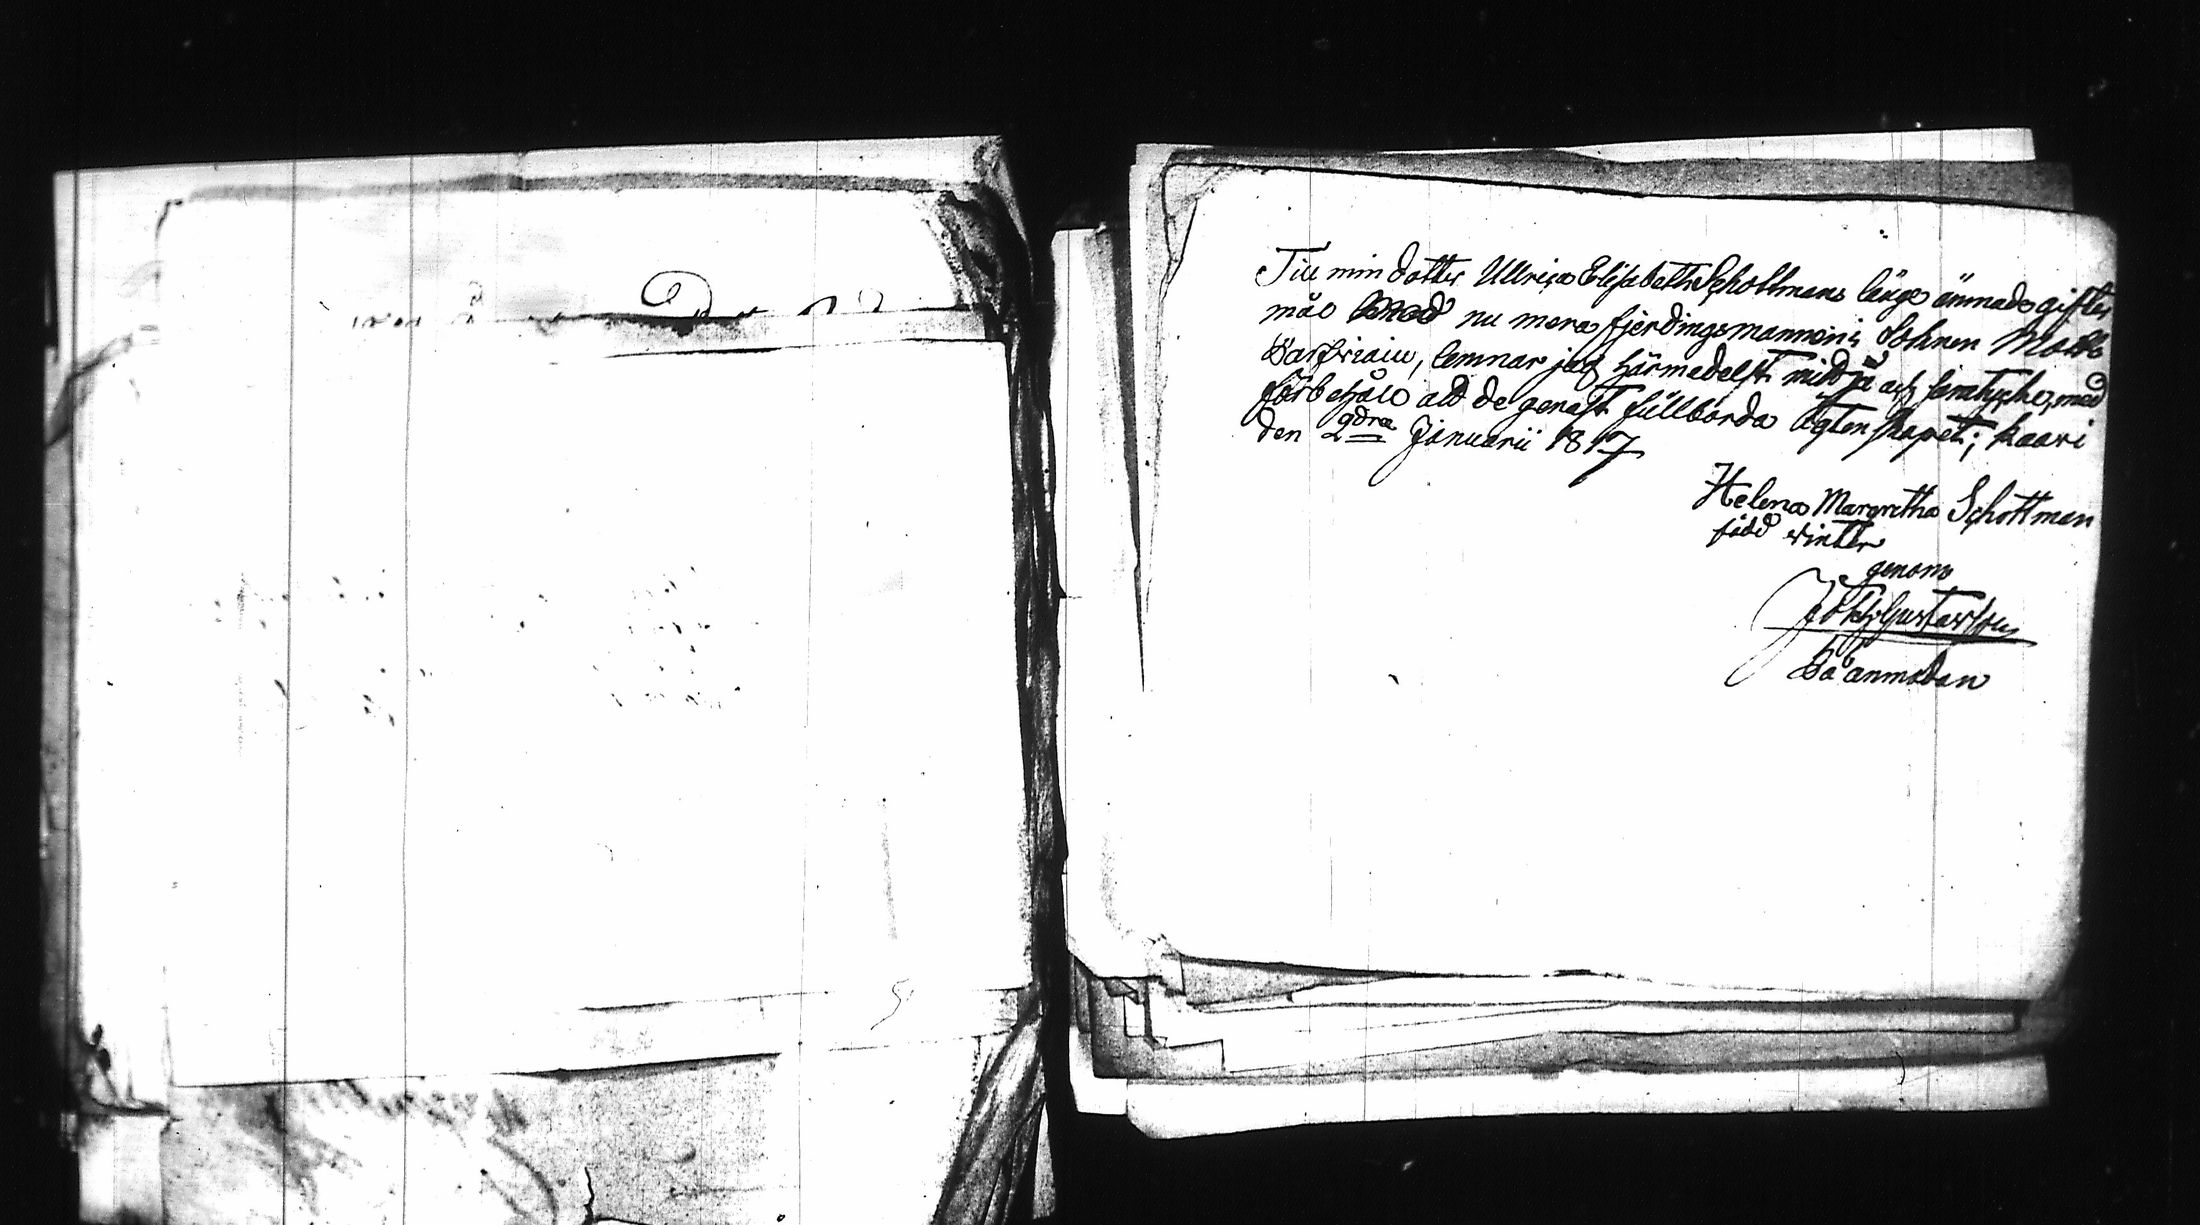 Till min dotter Ullrica Elisabeth Schottmans länge ämnade gifter
mål med nu mera fjerdingsmannens Sohnen Matts
lemnar jag härmedelst mitt ja och samtycke, med
förbehåll att de genast fullborda ägtenskapet; Kaari
den 2dra Januarii 1817
Helena Margretha Schottman
född winter
genom
Gustafsson
På anmodan